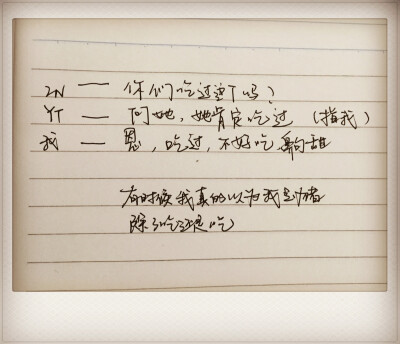 ZN — 你们吃过这个吗?
YT — 问她,她肯定吃过 (指我)
我 — 恩,吃过,不好吃 齁甜
有时候我真的以为我是个猪
除了吃还是吃